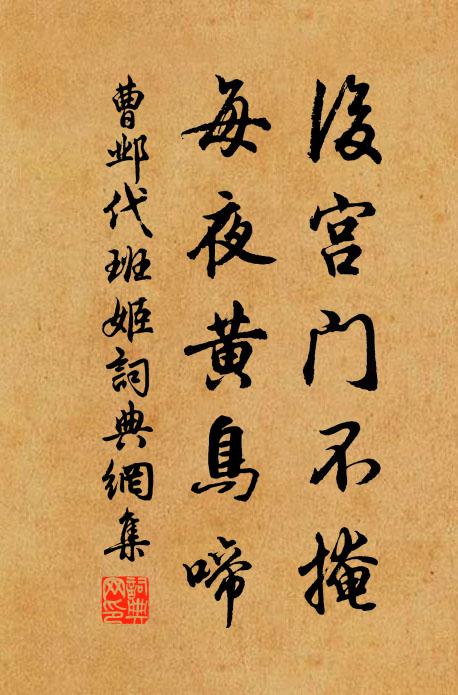 後宫門不掩
每夜黄鳥啼
曹邺代班姬詞典網集
詞典
网印